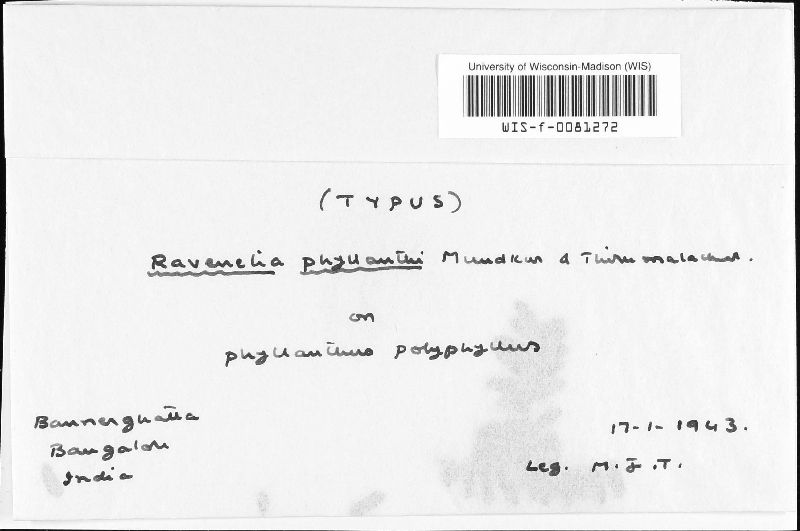 University of Wisconsin-Madison (WIS)
WIS-f-0081272
(TYPUS)
Ravenelia phyllanthi Mundkur & Thirumalachar.
on
phyllanthus polyphyllus
Bannerghatta
Bangalore
India
17-1-1943.
Leg. M.J.T.